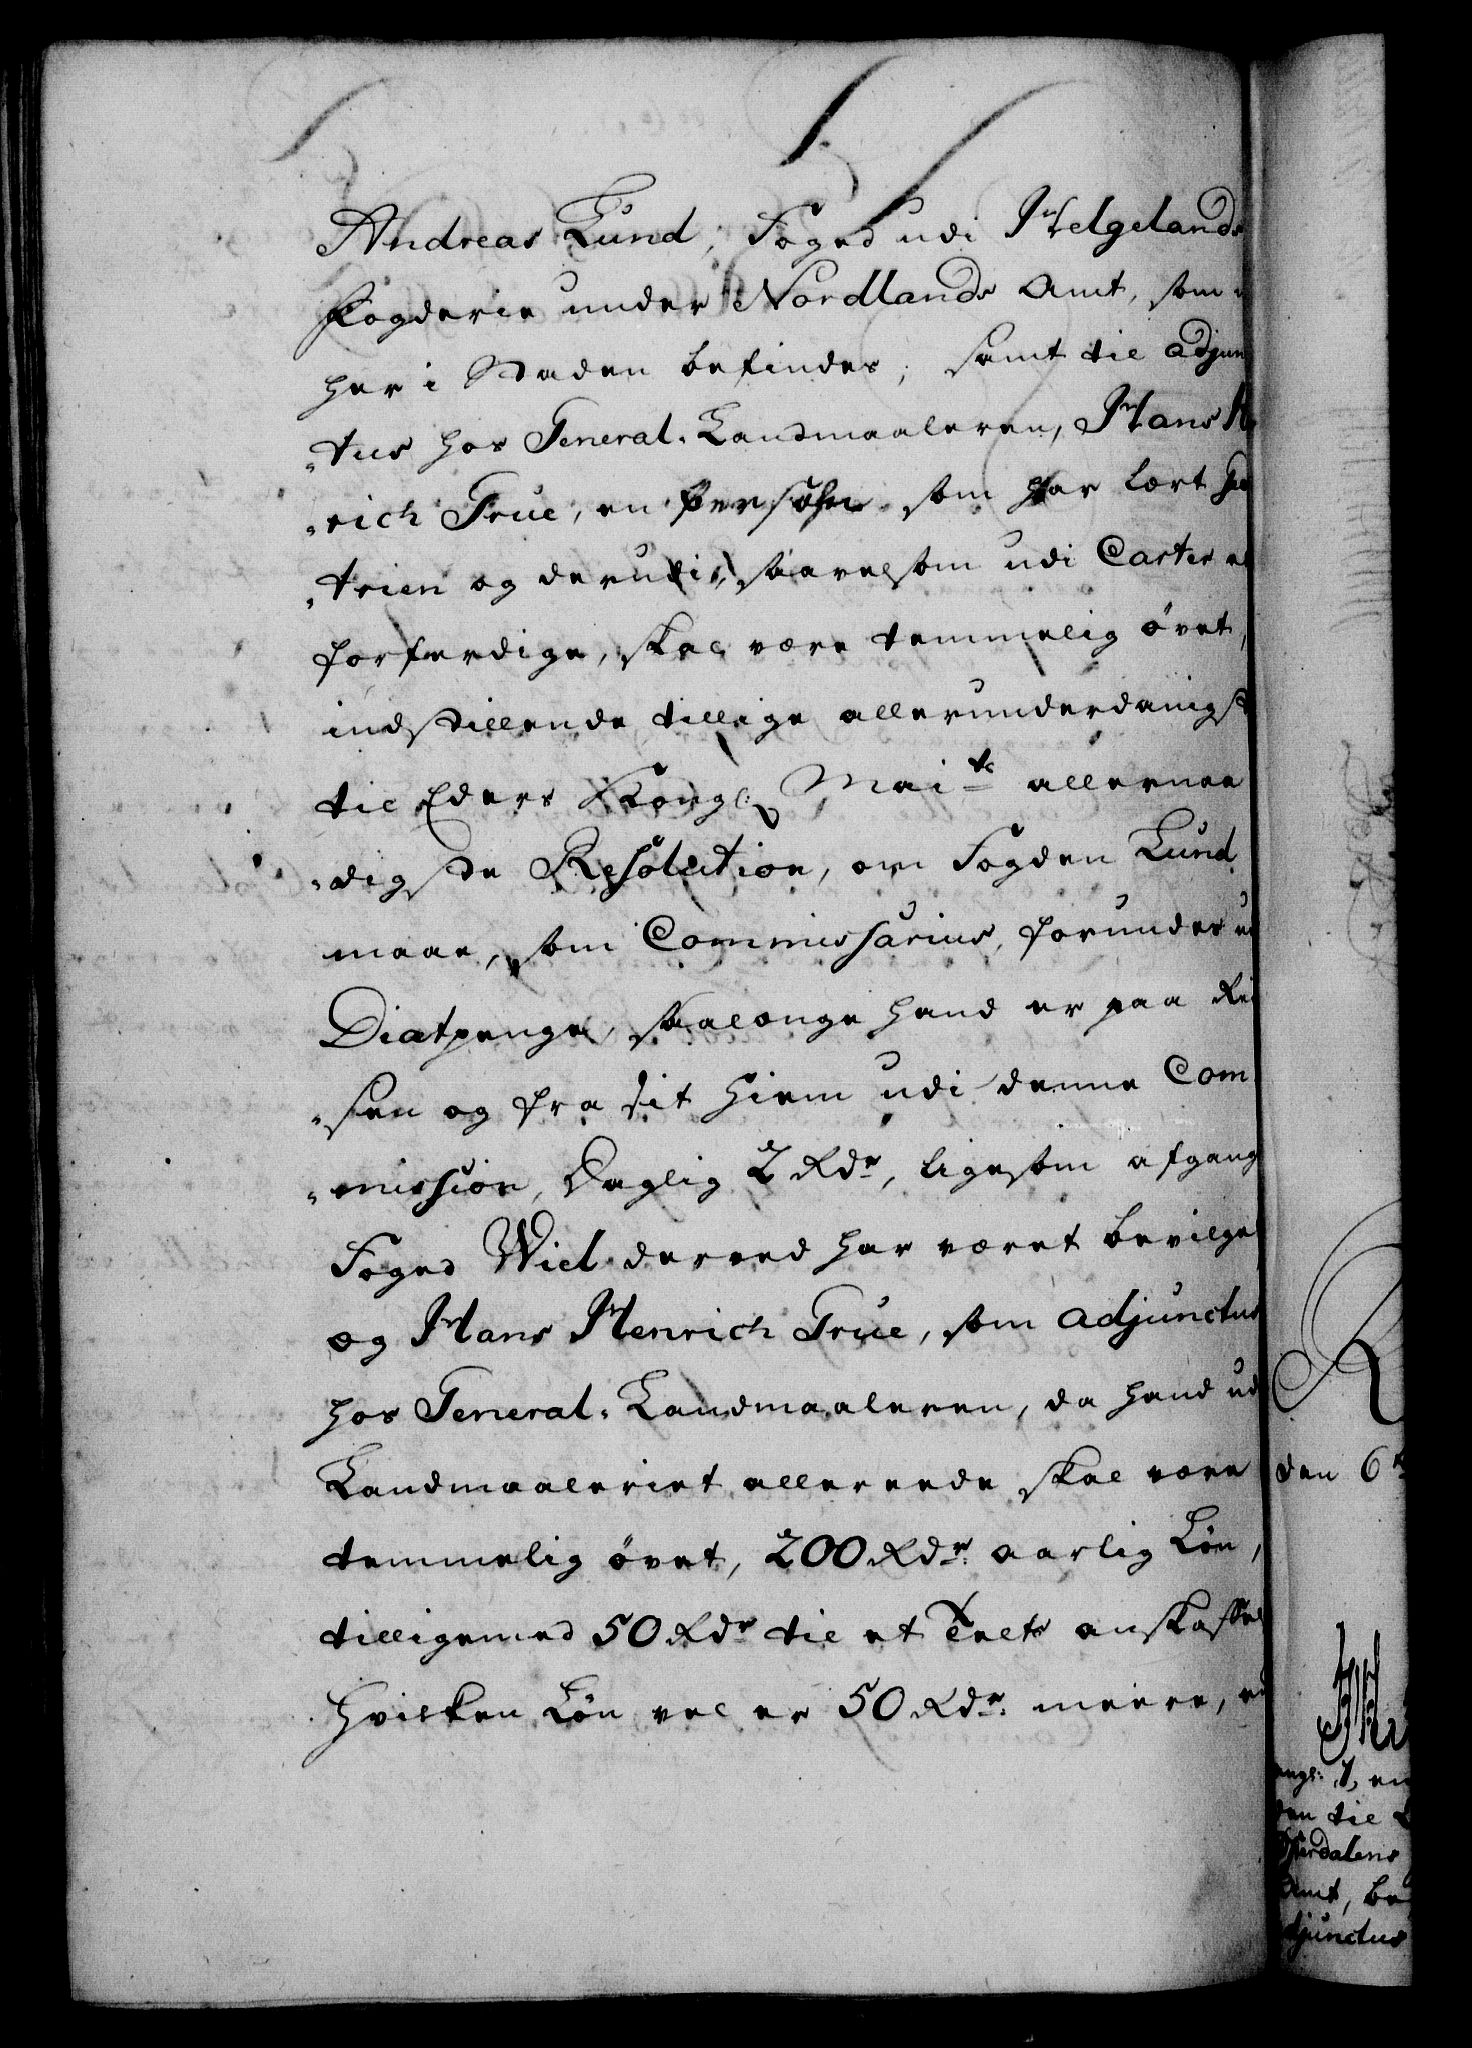 Andreas Lund, Foged udi Helgelands
Fogderie under Nordlands Amt, som
her i Staden befindes, samt til Adjun
„tus hos General-Landmaaleren, Hans
„rich True, en Persohn som har lært
„trien og derudi, saavelsom udi Carter
forferdige, skal være temmelig øvet,
indstillende tillige allerunderdanigst
til Eders Kongl. Maits allernaa
„digste Resolution, om Fogden Lund
maae, som Commissarius, forundes
Diætpenge, saalænge hand er paa Rei
„sen og fra sit Hiem udi denne Com
„mission, Daglig 2 Rdr, ligesom afgang
Foged Wiel derved har været bevilget
og Hans Henrich True, som Adjunctus
hos General-Landmaaleren, da hand ud
Landmaaleriet allereede skal være
temmelig øvet, 200 Rdr. aarlig Løn,
tilligemed 50 Rdr til et Telts anskaffel
Hvilken Løn vel er 50 Rdr. meere,
den 6
til
dalens
Amt, be
djunctus